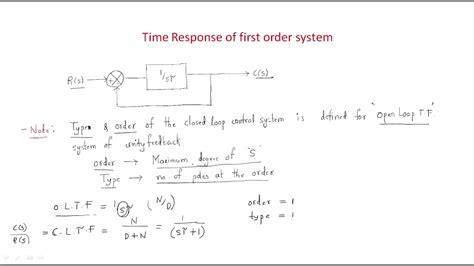 Time Response of first order system
R(s) 1/sτ C(s)
- Note: Type & order of the closed loop control system is defined for "Open Loop TF"
system of unity feedback.
order → Maximum degree of 'S'
Type → no of poles at the order
O.L.T.F = 1/sτ (N/D) order = 1
type = 1
C(s)/R(s) = C.L.T.F = N/(D+N) = 1/(sτ+1)